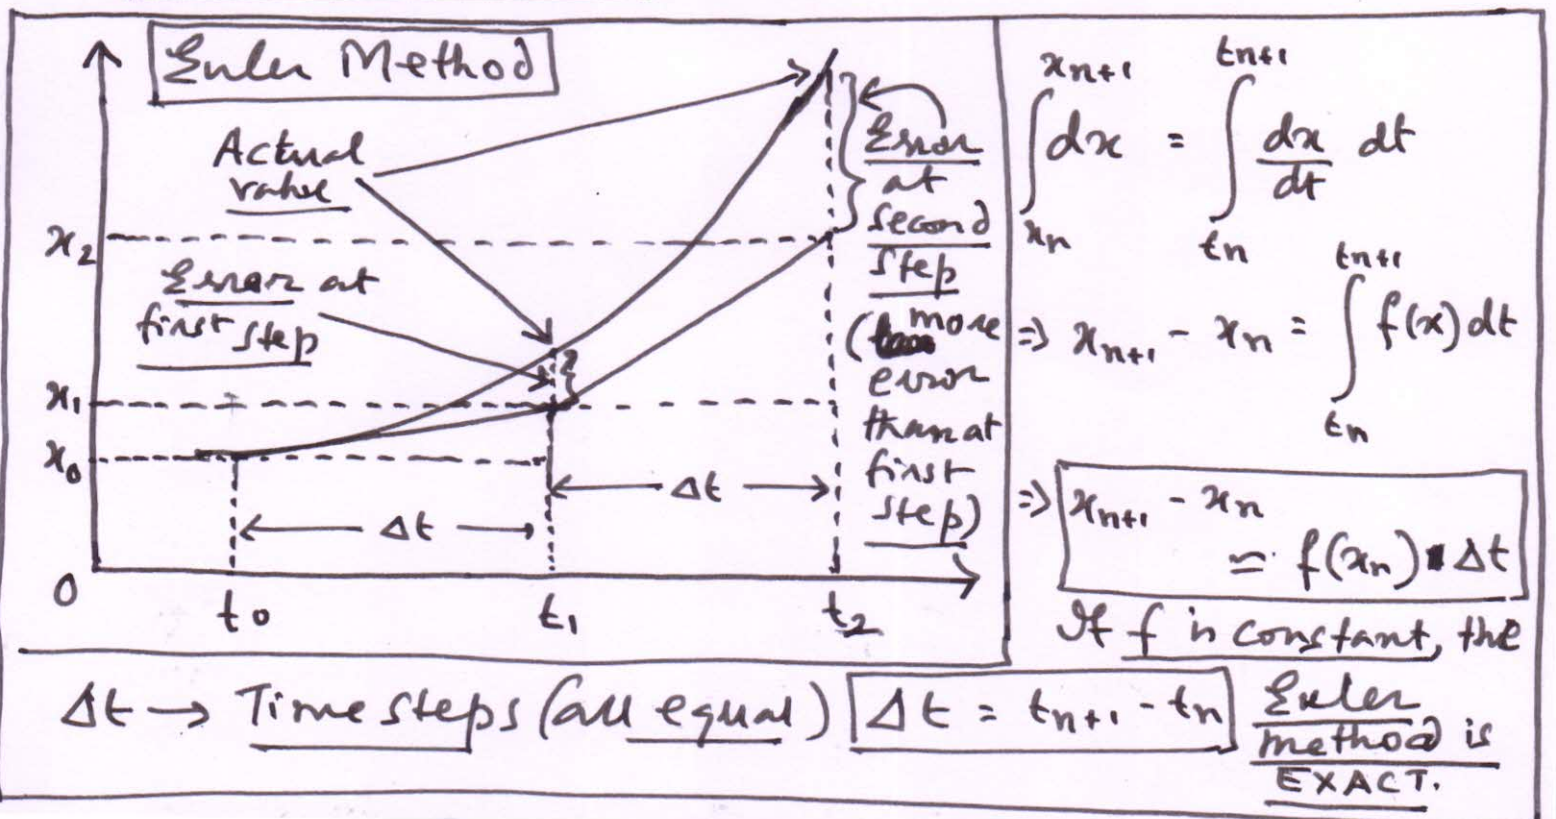 Euler Method
Actual
value
Error at
first step
x₂
x₁
x₀
0
t₀
t₁
t₂
Δt
Δt
Error
at
second
step
(more
error
than at
first
step)
∫_{xₙ}^{xₙ₊₁} dx = ∫_{tₙ}^{tₙ₊₁} dx/dt dt
⇒ xₙ₊₁ - xₙ = ∫_{tₙ}^{tₙ₊₁} f(x) dt
⇒ xₙ₊₁ - xₙ
≃ f(xₙ) · Δt
If f is constant, the
Euler
method is
EXACT.
Δt → Time steps (all equal) Δt = tₙ₊₁ - tₙ